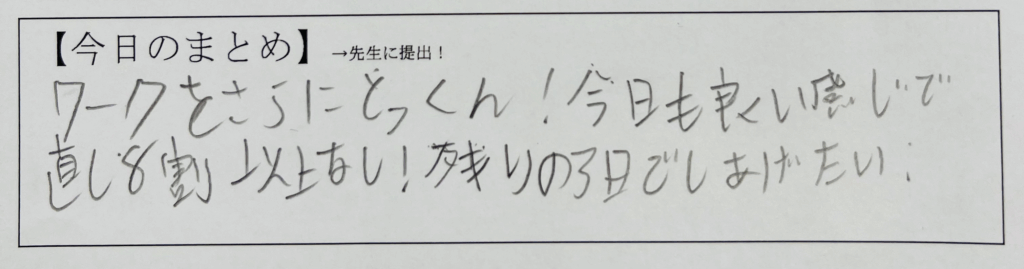 【今日のまとめ】 →先生に提出！
ワークをさらにとっくん！今日も良い感じで
直し8割以上なし！残りの3日でしあげたい！